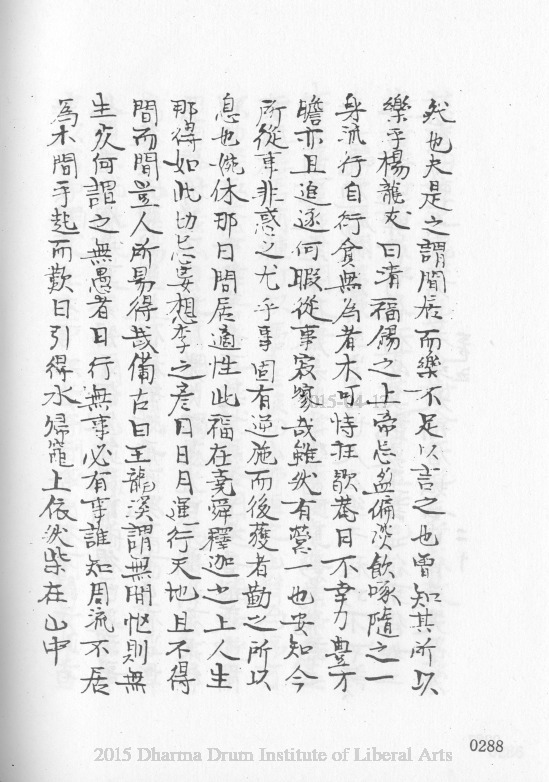 然也夫是之謂閒居而樂不足以言之也曾知其所以
樂乎楊龍友曰清福錫之上帝忌盈偏淡飲啄隨之一
身流行自行食無為者木可恃狂歇菴曰不幸力豊才
贍亦且追逐何暇從事寂寥哉雖然有營一也安知今
所從事非惑之尤乎事固有逆施而後獲者勤之所以
息也俺休那曰閒居適性此福在堯舜釋迦之上人生
那得如此切忌妄想李之彥曰日月運行天地且不得
閒而閒豈人所易得哉備古曰王龍溪謂無閒忙則無
生灾何謂之無愚者曰行無事必有事誰知周流不居
為木閒乎起而歎曰引得水歸篭上依然柴在山中
2015-04-17
0288
2015 Dharma Drum Institute of Liberal Arts